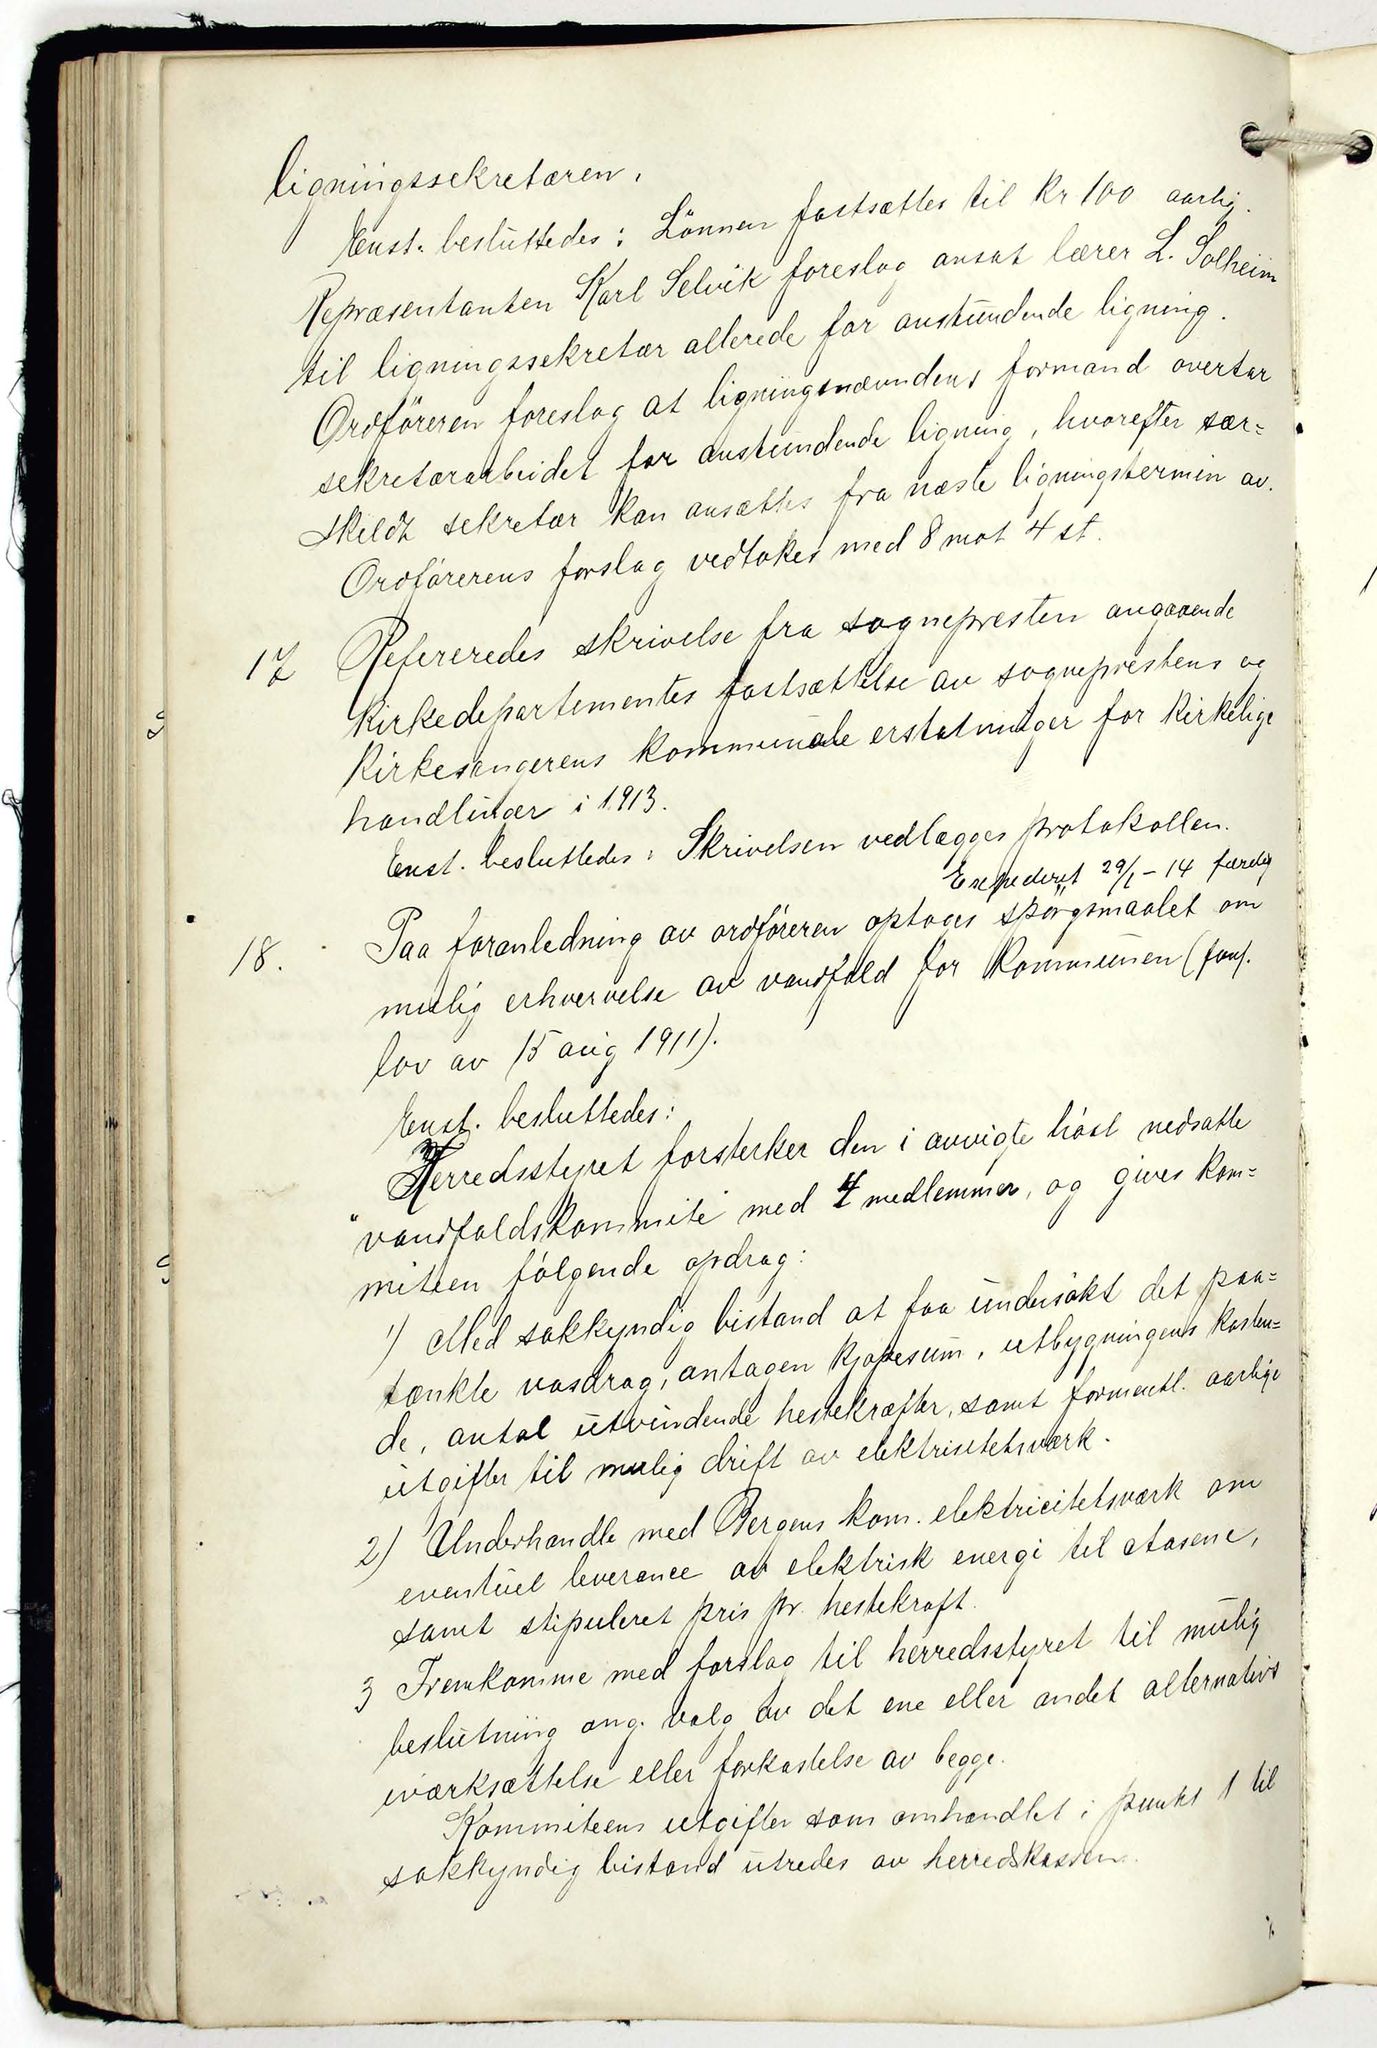 ligningssekretæren.
Enst. besluttedes: Lönnen fastsættes til kr 100 aarlig.
Repræsentanten Karl Selvik foreslog ansat lærer L. Solheim
til ligningssekretær allerede for anstundende ligning.
Ordföreren foreslog at ligningsnævndens formand overtar
sekretærarbeidet for anstundende ligning, hvorefter sær=
skildt sekretær kan ansættes fra næste ligningstermin av.
Ordförerens forslag vedtokes med 8 mot 4 st.
17 Refereredes skrivelse fra sognepresten angaaende
kirkedepartementes fastsættelse av sogneprestens og
kirkesangerens kommunale erstatninger for kirkelige
handlinger i 1913.
Enst. besluttedes: Skrivelsen vedlægges protokollen.
Expederet 29/1-14 færdig
18. Paa foranledning av ordföreren optoges spörgsmaalet om
mulig erhvervelse av vandfald for kommunen (
lov av 15 aug 1911).
Enst. besluttedes:
Herredsstyret forsterker den i avvigte höst nedsatte
"vandfaldskommite med 4 medlemmer, og gives kom=
miteen fölgende opdrag:
1) Med sakkyndig bistand at faa undersökt det paa=
tænkte vasdrag, antagen kjøpesum, utbygningens kosten=
de, antal utvindende hestekræfter, samt formentl. aarlige
utgifter til mulig drift av elektrisitetsværk.
2) Underhandle med Bergens kom. elektricitetsværk om
eventuel leverance av elektrisk energi til Aasene,
samt stipuleret pris pr. hestekraft.
3 Fremkomme med forslag til herredsstyret til mulig
beslutning ang. valg av det ene eller andet alternativs
iværksættelse eller forkastelse av begge.
Kommiteens utgifter som omhandlet i punkt 1 til
sakkyndig bistand utredes av herredskassen.